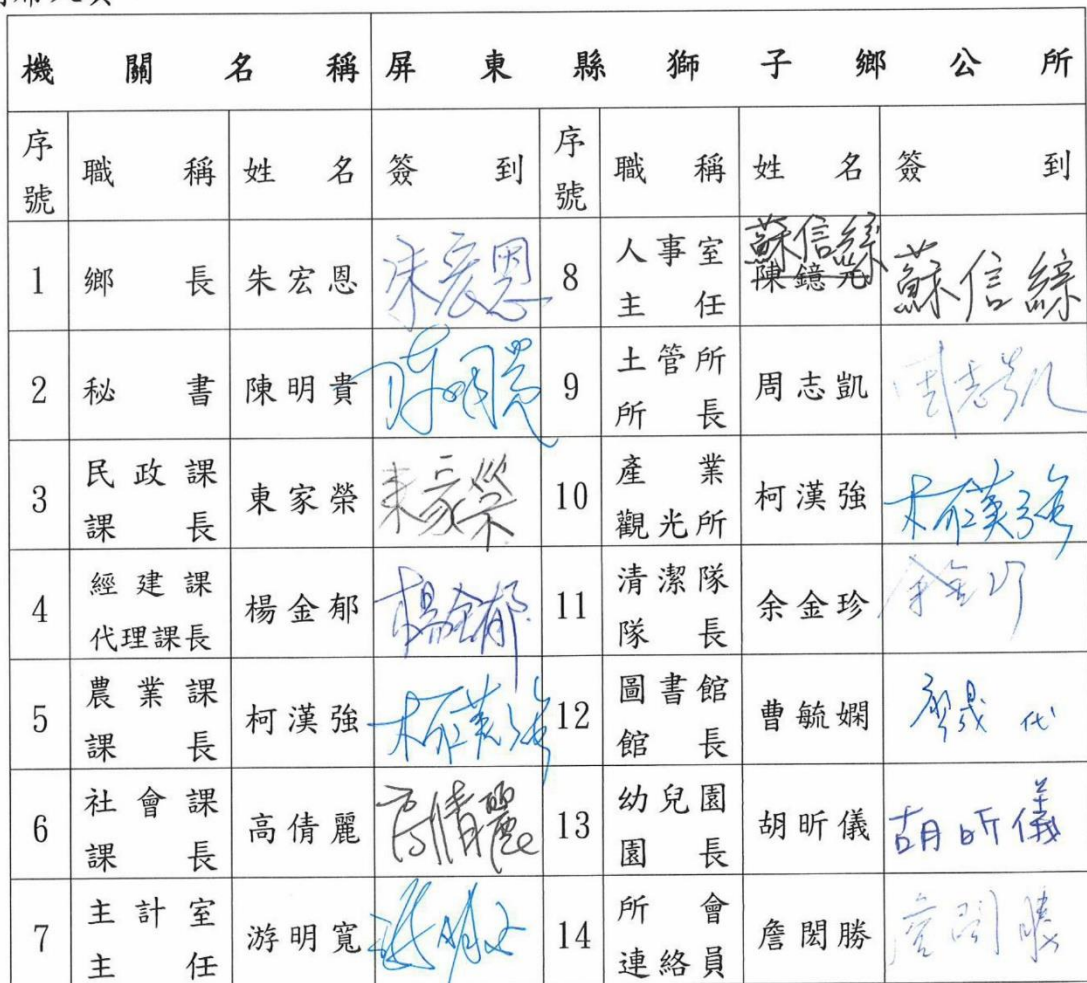 機關名稱 屏東縣獅子鄉公所
序號 職稱 姓名 簽到 序號 職稱 姓名 簽到
1 鄉長 朱宏恩 朱宏恩 8 人事室主任 陳鐿元 蘇信綜 蘇信綜
2 秘書 陳明貴 陳明貴 9 土管所所長 周志凱 周志凱
3 民政課課長 東家榮 東家榮 10 產業觀光所 柯漢強 柯漢強
4 經建課代理課長 楊金郁 楊金郁 11 清潔隊隊長 余金珍 余金珍
5 農業課課長 柯漢強 柯漢強 12 圖書館館長 曹毓嫻 代
6 社會課課長 高倩麗 高倩麗 13 幼兒園園長 胡昕儀 胡昕儀
7 主計室主任 游明寬 14 所會連絡員 詹閎勝 詹閎勝